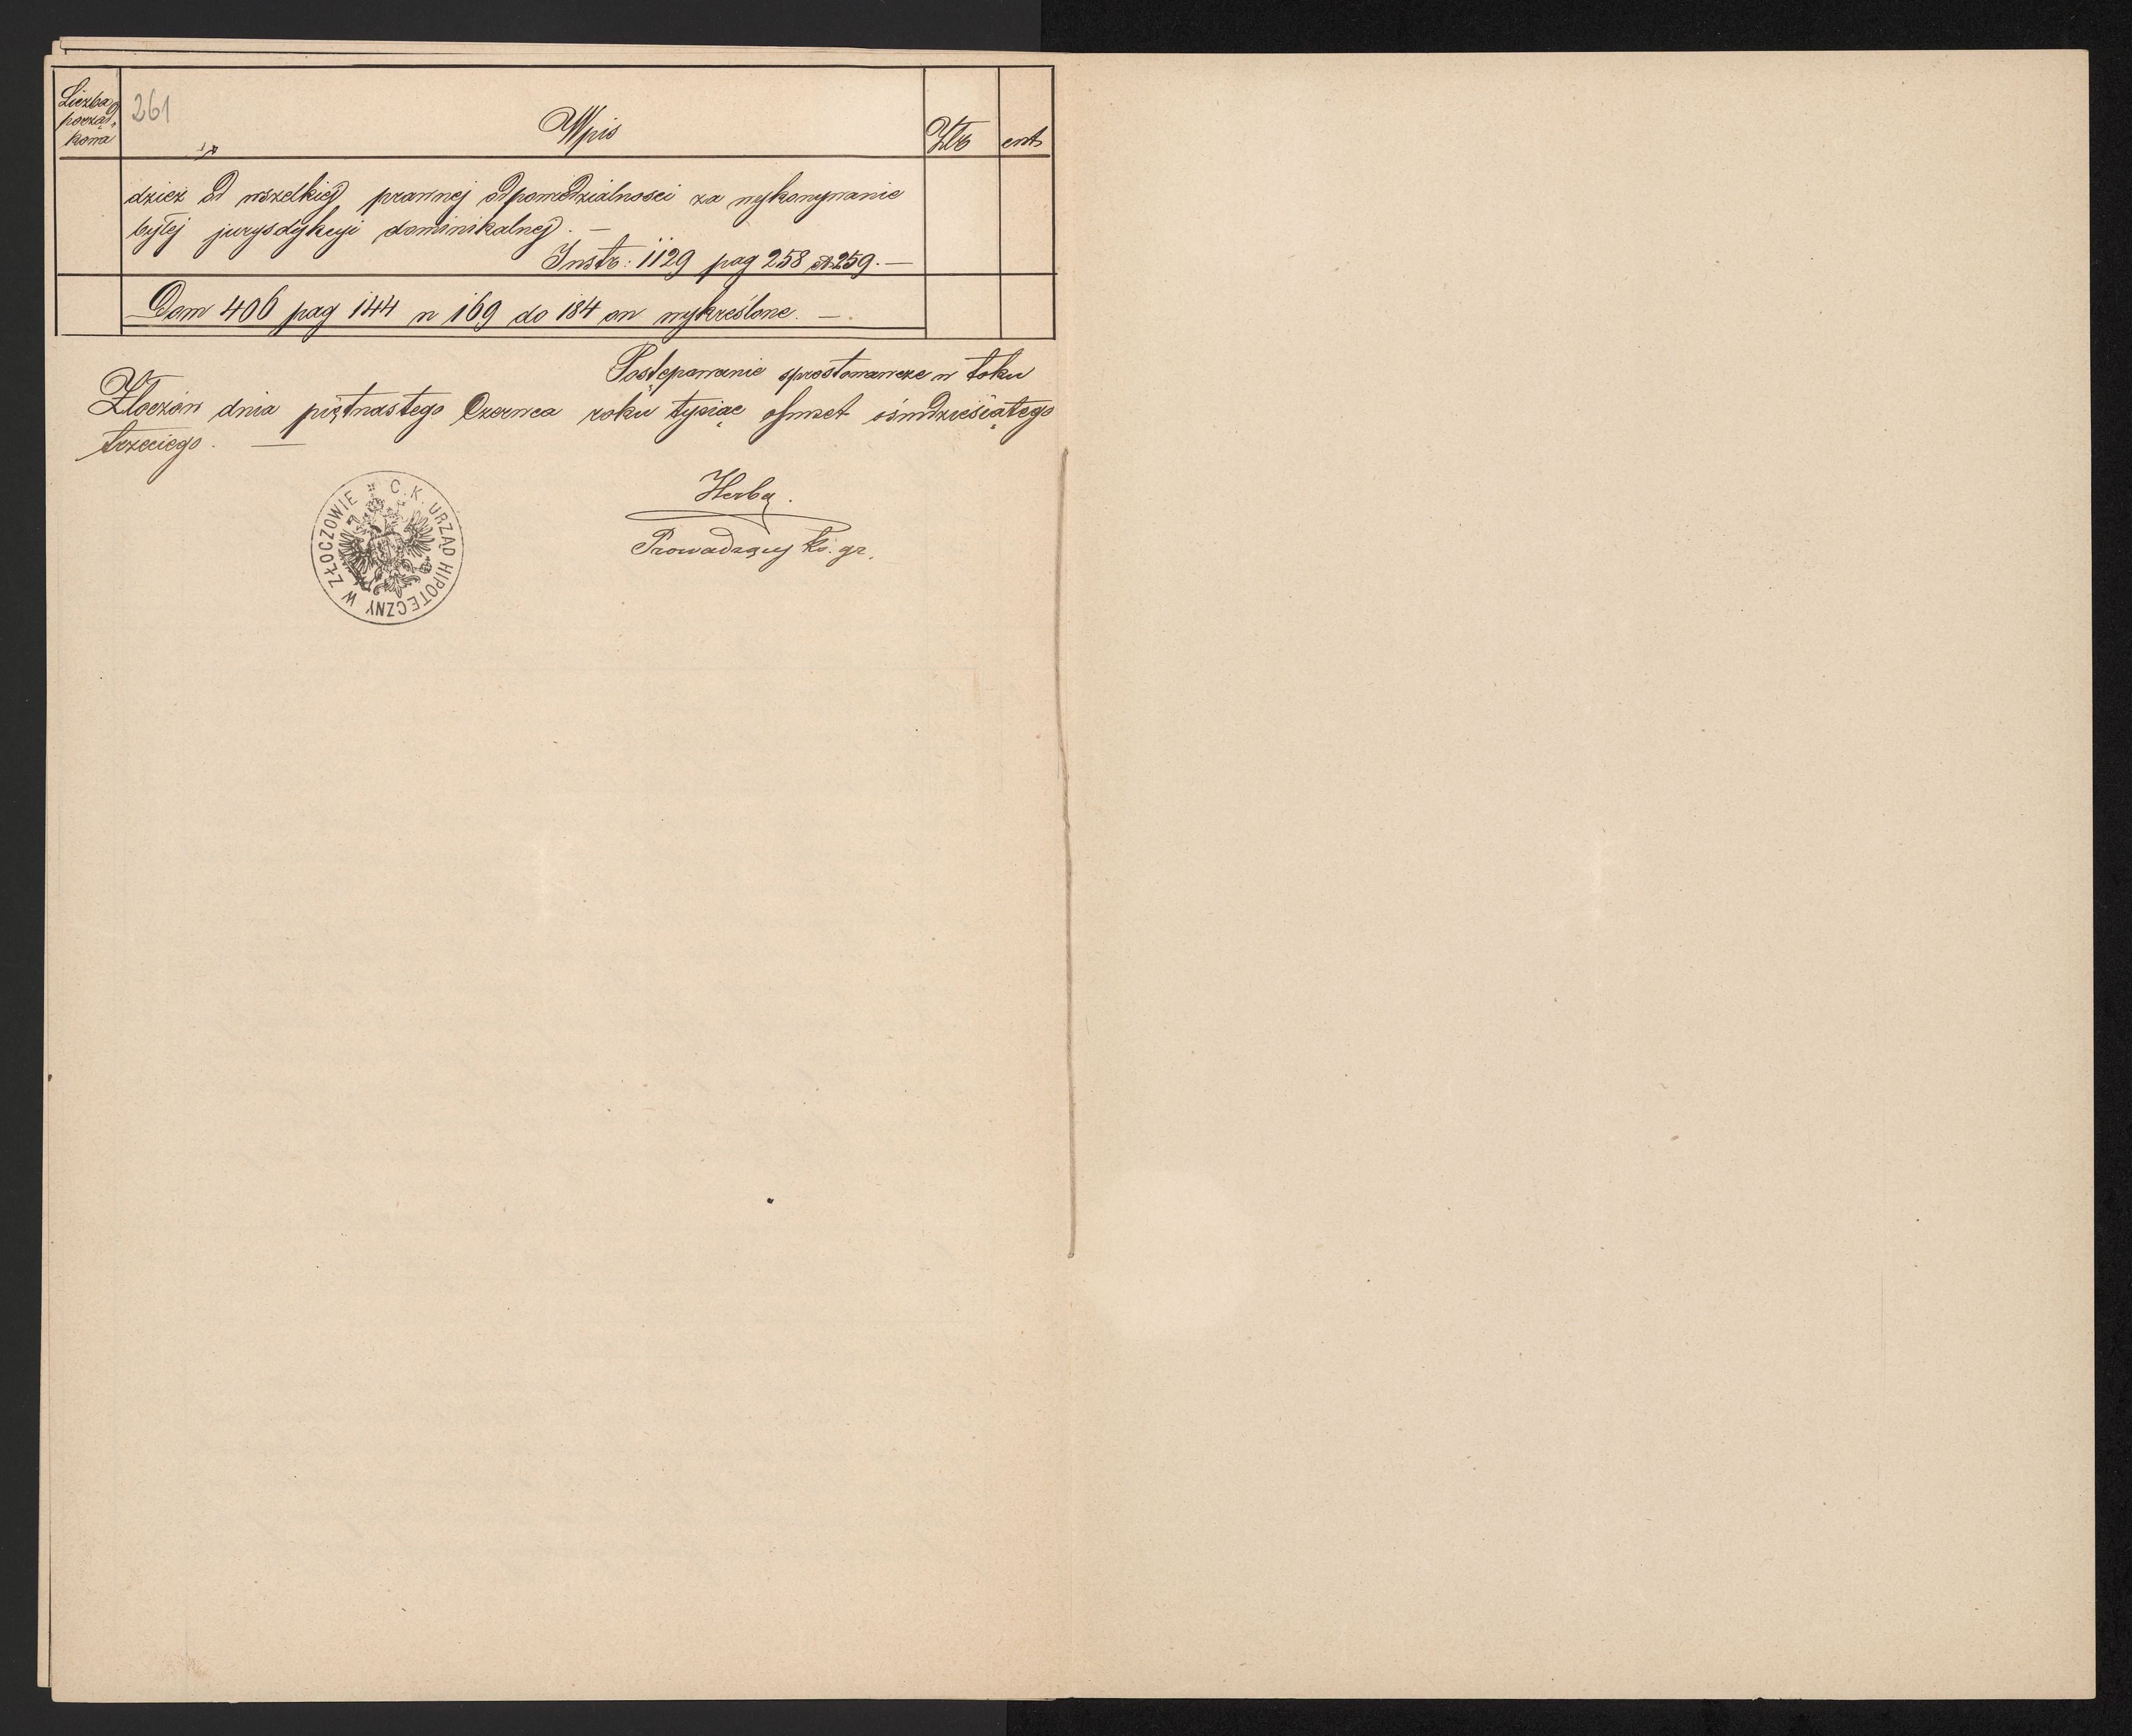 Liczba
porząd-
kowa
261
Wpis
Złr
cnt
dzież od wszelkiej prawnej odpowiedzialności za wykonywanie
byłej jurysdykcyi dominikalnej. —
Instr: 1129 pag 258 et 259. —
Dom 406 pag 144 n 169 do 184 on wykreślone. —
Postępowanie sprostowawcze w toku
Złoczów dnia piętnastego Czerwca roku tysiąc ośmset ośmdziesiątego
trzeciego. —
C. K. URZĄD HIPOTECZNY W ZŁOCZOWIE
Prowadzący ks. gr.